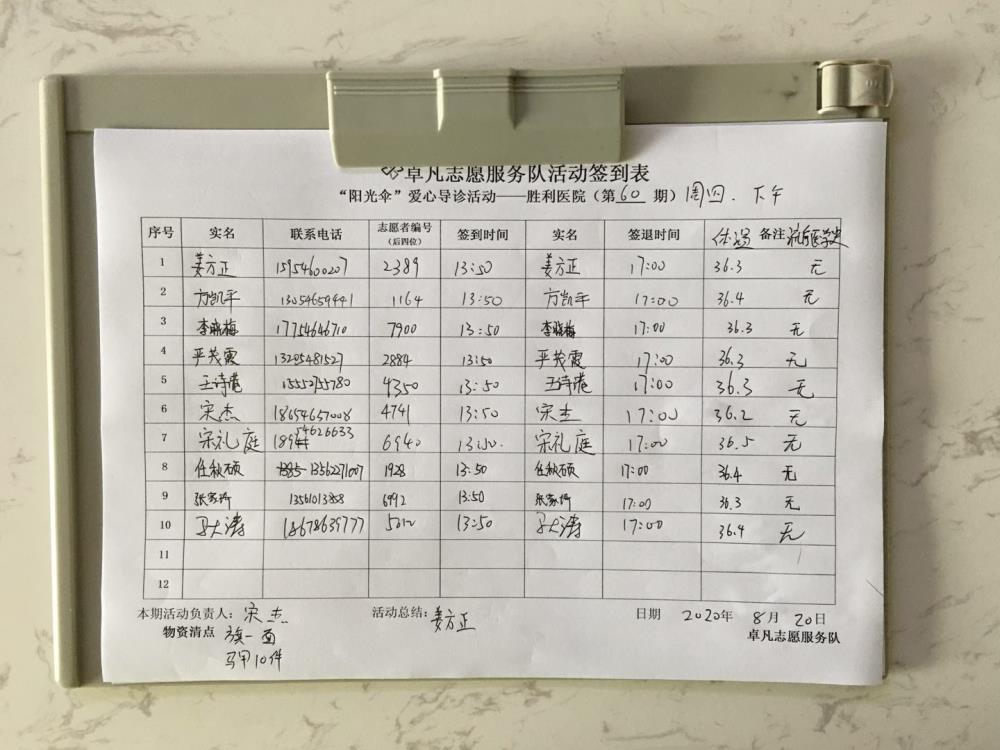 卓凡志愿服务队活动签到表
“阳光伞”爱心导诊活动——胜利医院（第60期）周四.下午
序号 实名 联系电话 志愿者编号（后四位） 签到时间 实名 签退时间 体温 备注
1 姜方正 15954600207 2389 13:50 姜方正 17:00 36.3 无
2 方凯平 13054659441 1164 13:50 方凯平 17:00 36.4 无
3 李晓梅 17754646710 7900 13:50 李晓梅 17:00 36.3 无
4 严茂霞 13205481527 2884 13:50 严茂霞 17:00 36.3 无
5 王诗港 15552755780 4350 13:50 王诗港 17:00 36.3 无
6 宋杰 18654657008 4741 13:50 宋杰 17:00 36.2 无
7 宋礼庭 189 54626633 6940 13:50. 宋礼庭 17:00 36.5 无
8 任秋硕 13562271007 1928 13:50 任秋硕 17:00 36.4 无
9 张家 6992 13:50 张家 17:00 36.3 无
10 马大涛 18678639777 5012 13:50 马大涛 17:00 36.4 无
11
12
本期活动负责人：宋杰 活动总结：姜方正 日期 2020年8月20日
物资清点 旗一面 卓凡志愿服务队
马甲10件